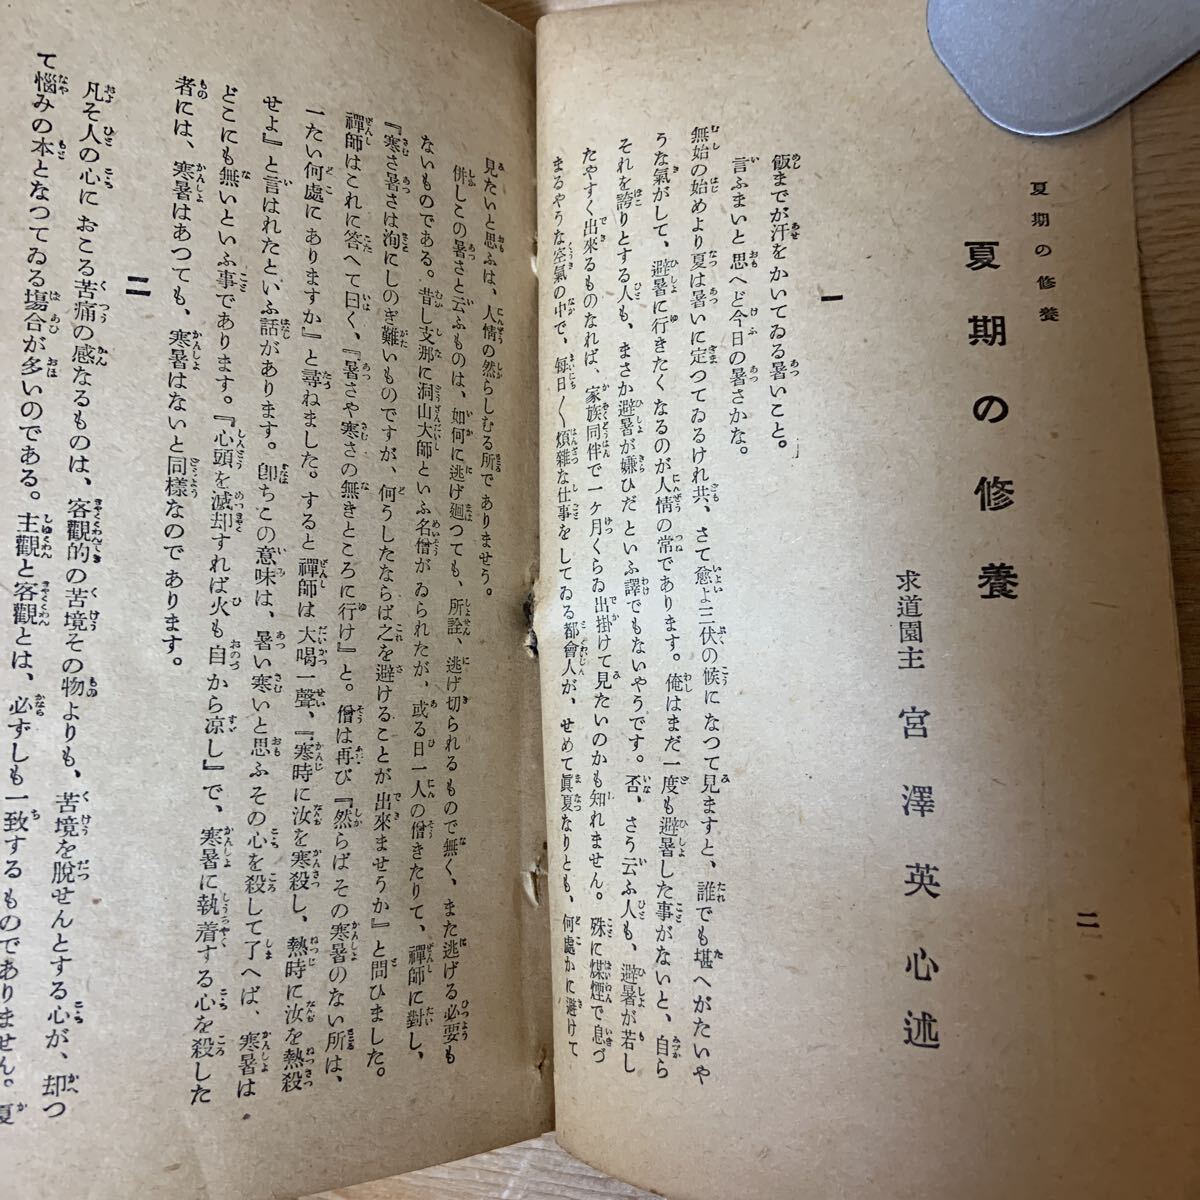 夏期の修養
二
夏期の修養
求道園主 宮澤英心述
飯までが汗をかいてゐる暑いこと。
言ふまいと思へど今日の暑さかな。
一
無始の始めより夏は暑いに定つてゐるけれ共、さて愈よ三伏の候になつて見ますと、誰でも堪へがたいや
うな氣がして、避暑に行きたくなるのが人情の常であります。俺はまだ一度も避暑した事がないと、自ら
それを誇りとする人も、まさか避暑が嫌ひだといふ譯でもないやうです。否、さう云ふ人も、避暑が若し
たやすく出來るものなれば、家族同伴で一ヶ月くらゐ出掛けて見たいのかも知れません。殊に煤煙で息づ
まるやうな空氣の中で、毎日〱煩雜な仕事をしてゐる都會人が、せめて眞夏なりとも、何處かに避けて
見たいと思ふは、人情の然らしむる所でありませう。
併しこの暑さと云ふものは、如何に逃げ廻つても、所詮、逃げ切られるもので無く、また逃げる必要も
ないものである。昔し支那に洞山大師といふ名僧がゐられたが、或る日一人の僧きたりて、禪師に對し、
『寒さ暑さは洵にしのぎ難いものですが、何うしたならば之を避けることが出來ませうか』と問ひました。
禪師はこれに答へて曰く、『暑さや寒さの無きところに行け』と。僧は再び『然らばその寒暑のない所は、
一たい何處にありますか』と尋ねました。すると禪師は大喝一聲、『寒時に汝を寒殺し、熱時に汝を熱殺
せよ』と言はれたといふ話があります。卽ちこの意味は、暑い寒いと思ふその心を殺して了へば、寒暑は
どこにも無いといふ事であります。『心頭を滅却すれば火も自から凉し』で、寒暑に執着する心を殺した
者には、寒暑はあつても、寒暑はないと同樣なのであります。
二
凡そ人の心におこる苦痛の感なるものは、客觀的の苦境その物よりも、苦境を脱せんとする心が、却つ
て惱みの本となつてゐる場合が多いのである。主觀と客觀とは、必ずしも一致するものでありません。夏